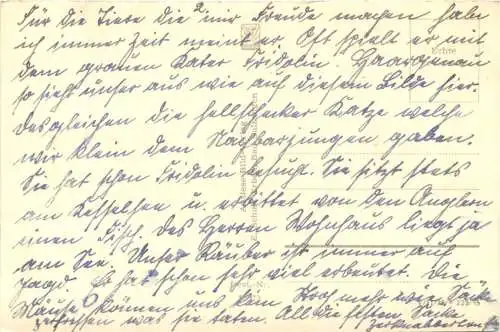 Für die Tiere die mir Freude machen habe
ich immer Zeit meint er. Oft spielt er mit
dem grauen Kater Fridolin. Haargenau
so sieht unser aus wie auf diesem Bilde hier.
Desgleichen die hellschecker Katze welche
wir klein dem Nachbarjungen gaben.
Sie hat schon Fridolin besucht. Sie sitzt stets
am u. erbittet von den Anglern
einen Fisch. Des Herren Wohnhaus liegt ja
am See. Unser Räuber ist immer auf
Jagd. Er hat schon sehr viel erbeutet. Die
Mäuse können uns kein Loch mehr wie Säcke
zerfressen was sie taten. All die festen Säcke